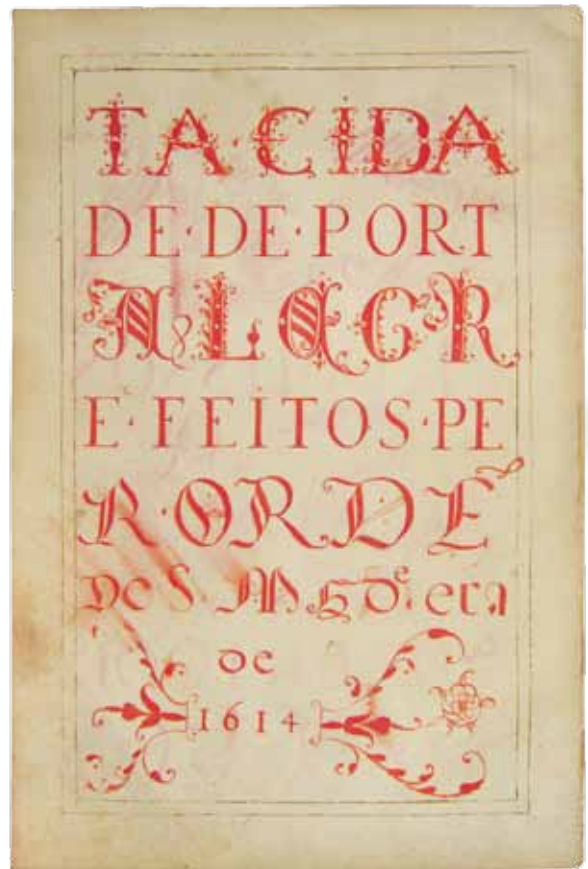 TA·CIDA
DE·DE·PORT
ALEGR
E·FEITOS·PE
R·ORDĒ
De S. M
de
1614